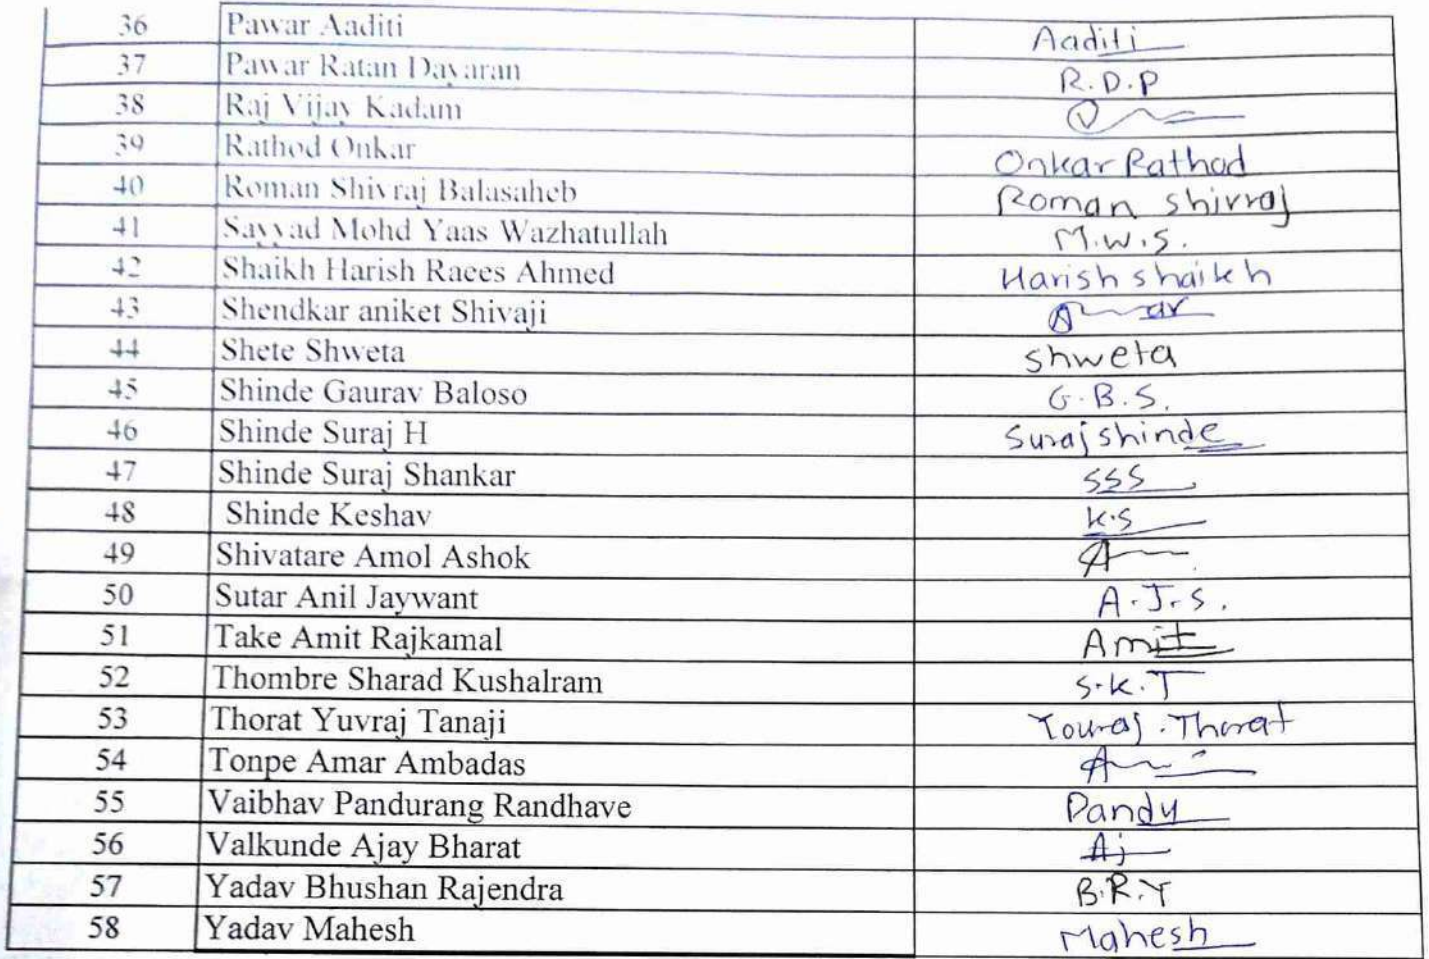 36 Pawar Aaditi Aaditi
37 Pawar Ratan Dayaran R.D.P
38 Raj Vijay Kadam
39 Rathod Onkar Onkar Rathod
40 Roman Shivraj Balasaheb Roman Shivraj
41 Sayyad Mohd Yaas Wazhatullah M.W.S.
42 Shaikh Harish Raees Ahmed Harish shaikh
43 Shendkar aniket Shivaji
44 Shete Shweta Shweta
45 Shinde Gaurav Baloso G.B.S.
46 Shinde Suraj H Suraj shinde
47 Shinde Suraj Shankar SSS
48 Shinde Keshav K.S
49 Shivatare Amol Ashok
50 Sutar Anil Jaywant A.J.S.
51 Take Amit Rajkamal Amit
52 Thombre Sharad Kushalram S.K.T
53 Thorat Yuvraj Tanaji Youraj . Thorat
54 Tonpe Amar Ambadas
55 Vaibhav Pandurang Randhave Pandu
56 Valkunde Ajay Bharat Aj
57 Yadav Bhushan Rajendra B.R.Y
58 Yadav Mahesh Mahesh